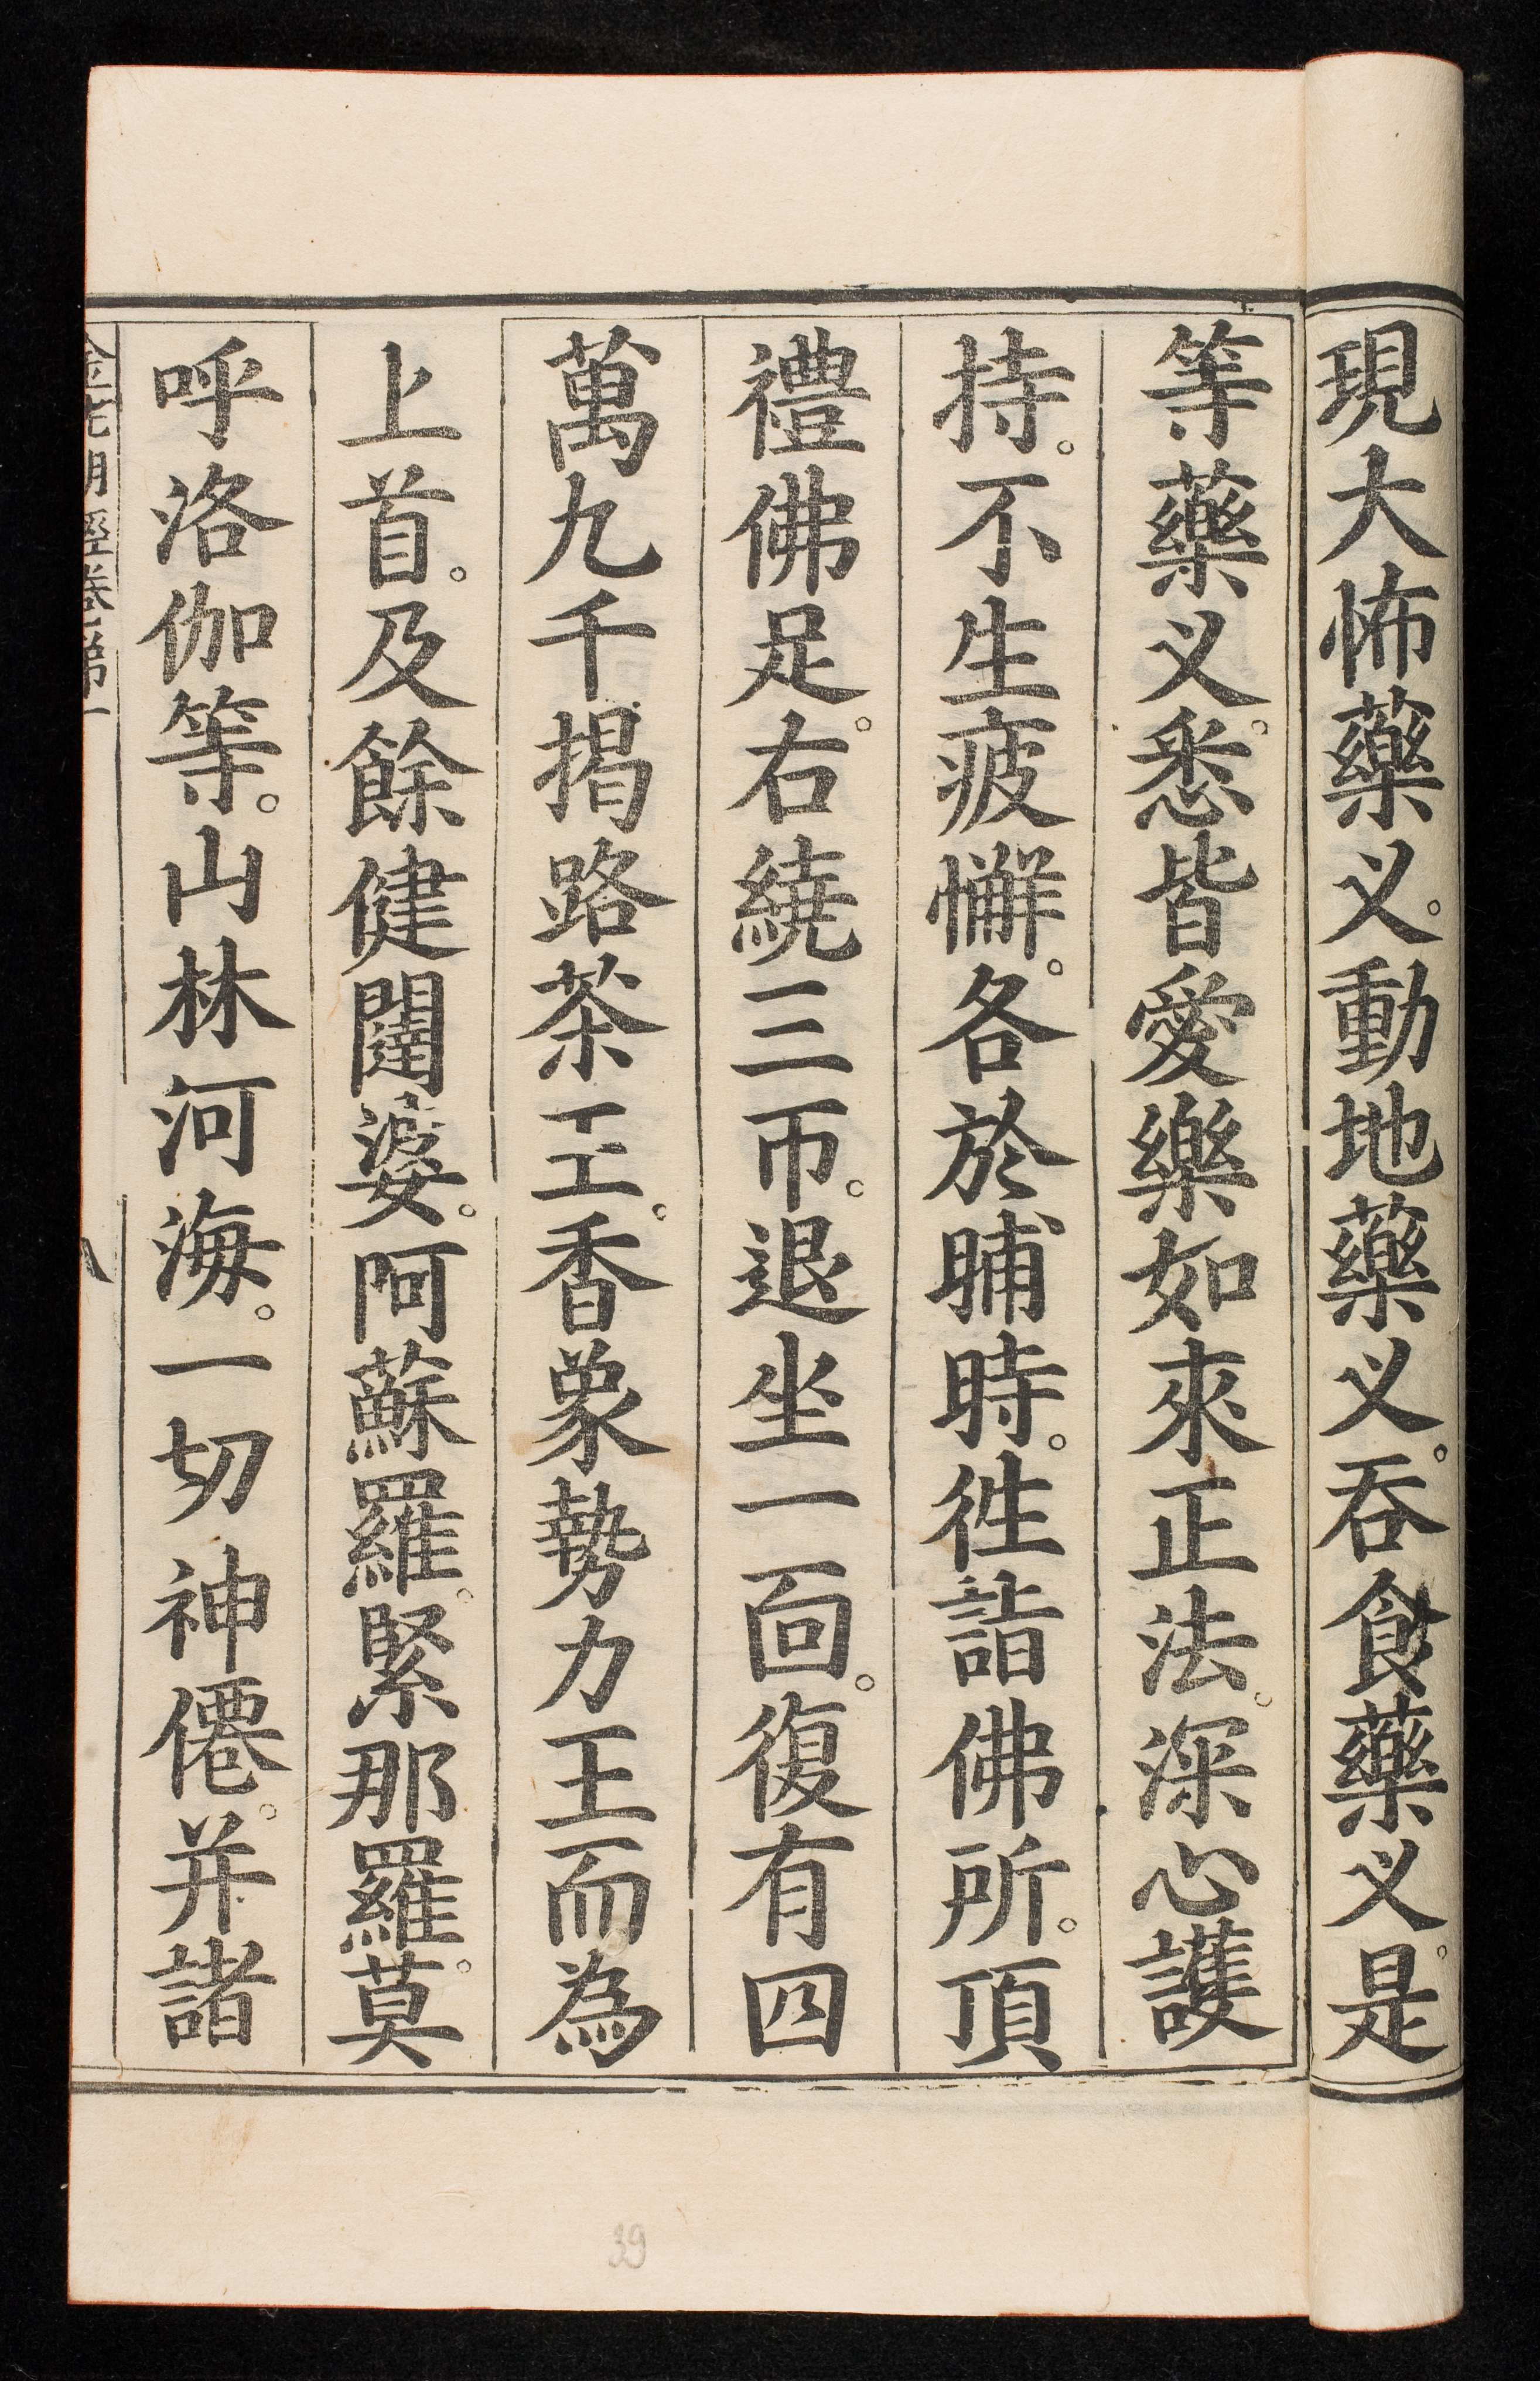 現大怖藥义。動地藥义。吞食藥义。是
等藥义。悉皆愛樂如來正法。深心護
持。不生疲懈。各於晡時。徃詣佛所。頂
禮佛足。右繞三帀。退坐一靣。復有四
萬九千揭路茶王。香象勢力王而為
上首。及餘健闥婆。阿蘇羅。緊那羅。莫
呼洛伽等。山林河海。一切神僊。并諸
金光明經卷第一
八
39